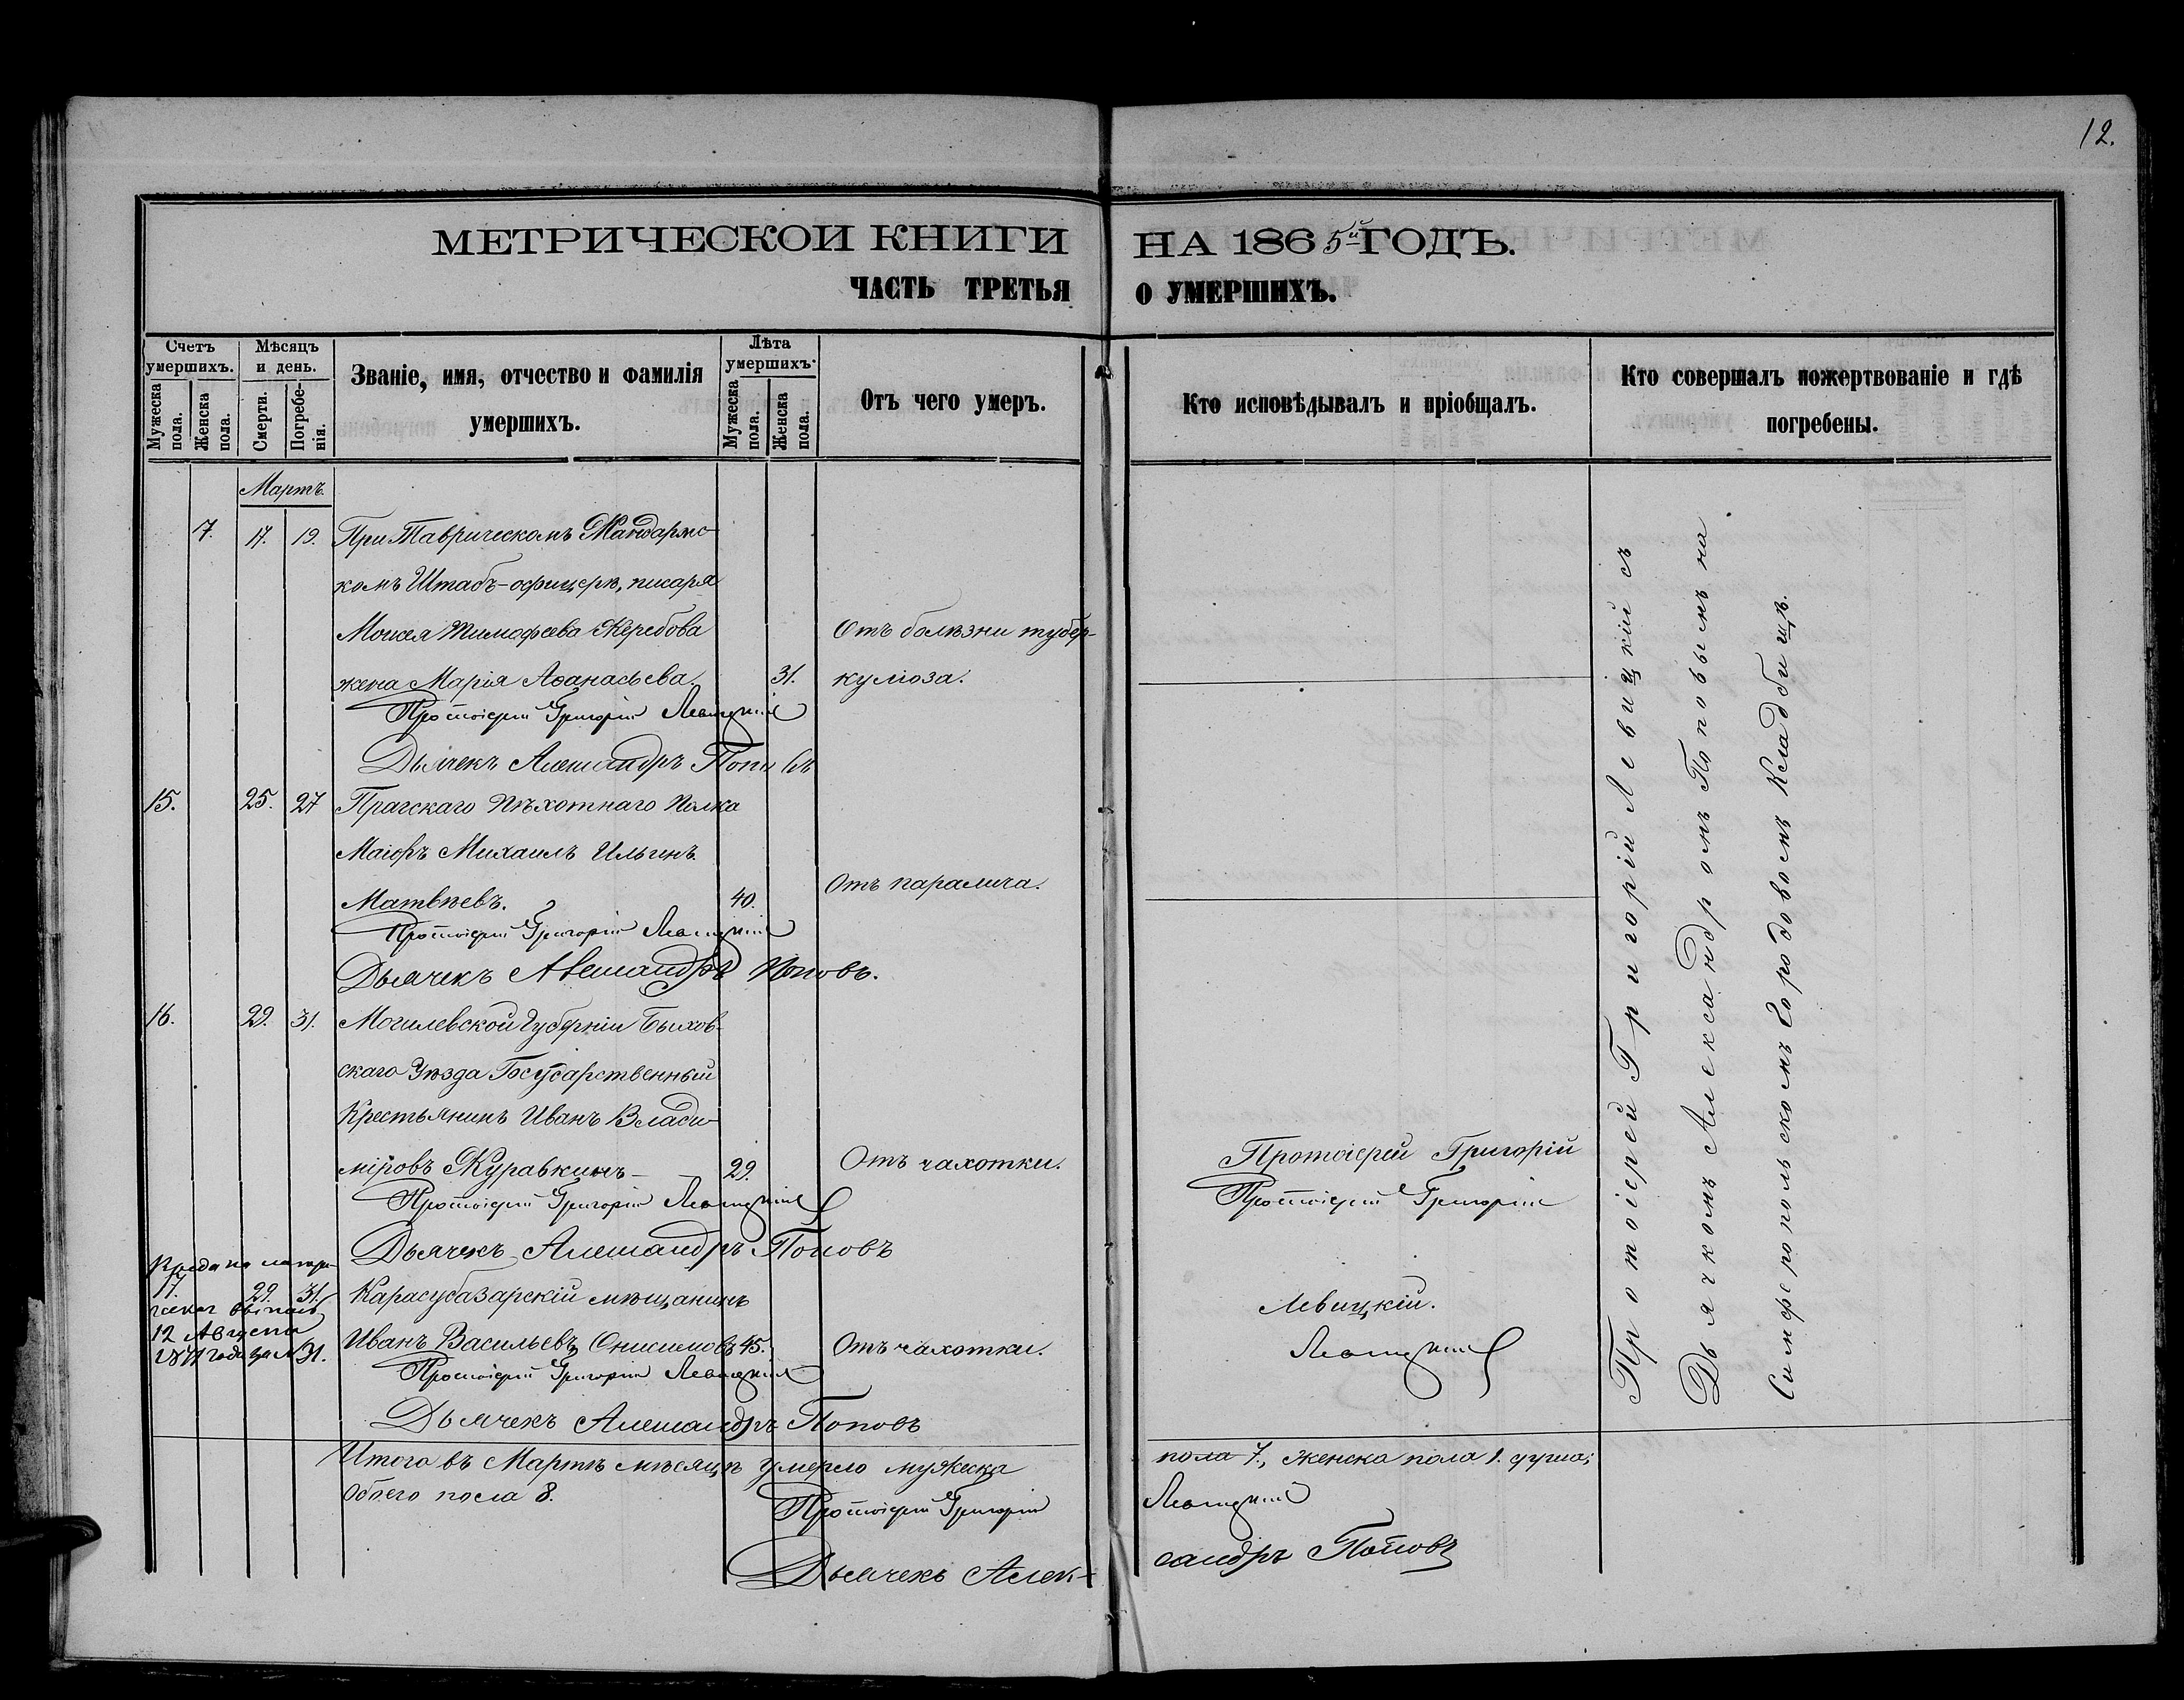 12.
МЕТРИЧЕСКОЙ КНИГИ НА 1865й ГОДЪ.
ЧАСТЬ ТРЕТЬЯ О УМЕРШИХЪ.
Счетъ умершихъ.
Мужеска пола.
Женска пола.
Мѣсяцъ и день.
Смерти.
Погребенія.
Званіе, имя, отчество и фамилія
умершихъ.
Лѣта умершихъ.
Мужеска пола.
Женска пола.
Отъ чего умеръ.
Кто исповѣдывалъ и пріобщалъ.
Кто совершалъ пожертвованіе и гдѣ
погребены.
Мартъ.
7. 17. 19. При Таврическомъ Жандармс-
комъ Штабъ-офицерѣ, писаря
Моисея Тимофеева Жеребова Отъ болѣзни тубер-
жена Марія Аѳанасьева. 31. куліоза.
Протоіерей Григорій Левицкій
Дьячекъ Александръ Поповъ
15. 25. 27 Прагскаго Пѣхотнаго Полка
Маіоръ Михаилъ Ильинъ
Матвѣевъ. 40. Отъ паралича.
Протоіерей Григорій Левицкій
Дьячекъ Александръ Поповъ.
16. 29. 31. Могилевской Губерніи Быхов-
скаго Уѣзда Государственный
Крестьянинъ Иванъ Влади-
міровъ Журавкинъ 29. Отъ чахотки. Протоіерей Григорій
Протоіерей Григорій Левицкій Протоіерей Григорій
Дьячекъ Александръ Поповъ
17. 29. 31. Карасубазарскій мѣщанинъ Левицкій.
12 Августа
Иванъ Васильевъ Онисимовъ 45. Отъ чахотки. Левицкій
31.
Протоіерей Григорій Левицкій
Дьячекъ Александръ Поповъ
Протоіерей Григорій Левицкій съ
Дьячкомъ Александромъ Поповымъ на
Симферопольскомъ Городовомъ Кладбищѣ.
Итого въ Мартѣ мѣсяцѣ умерло мужеска пола 7., женска пола 1. душа;
Обоего пола 8.
Протоіерей Григорій Левицкій
Дьячекъ Алек-сандръ Поповъ